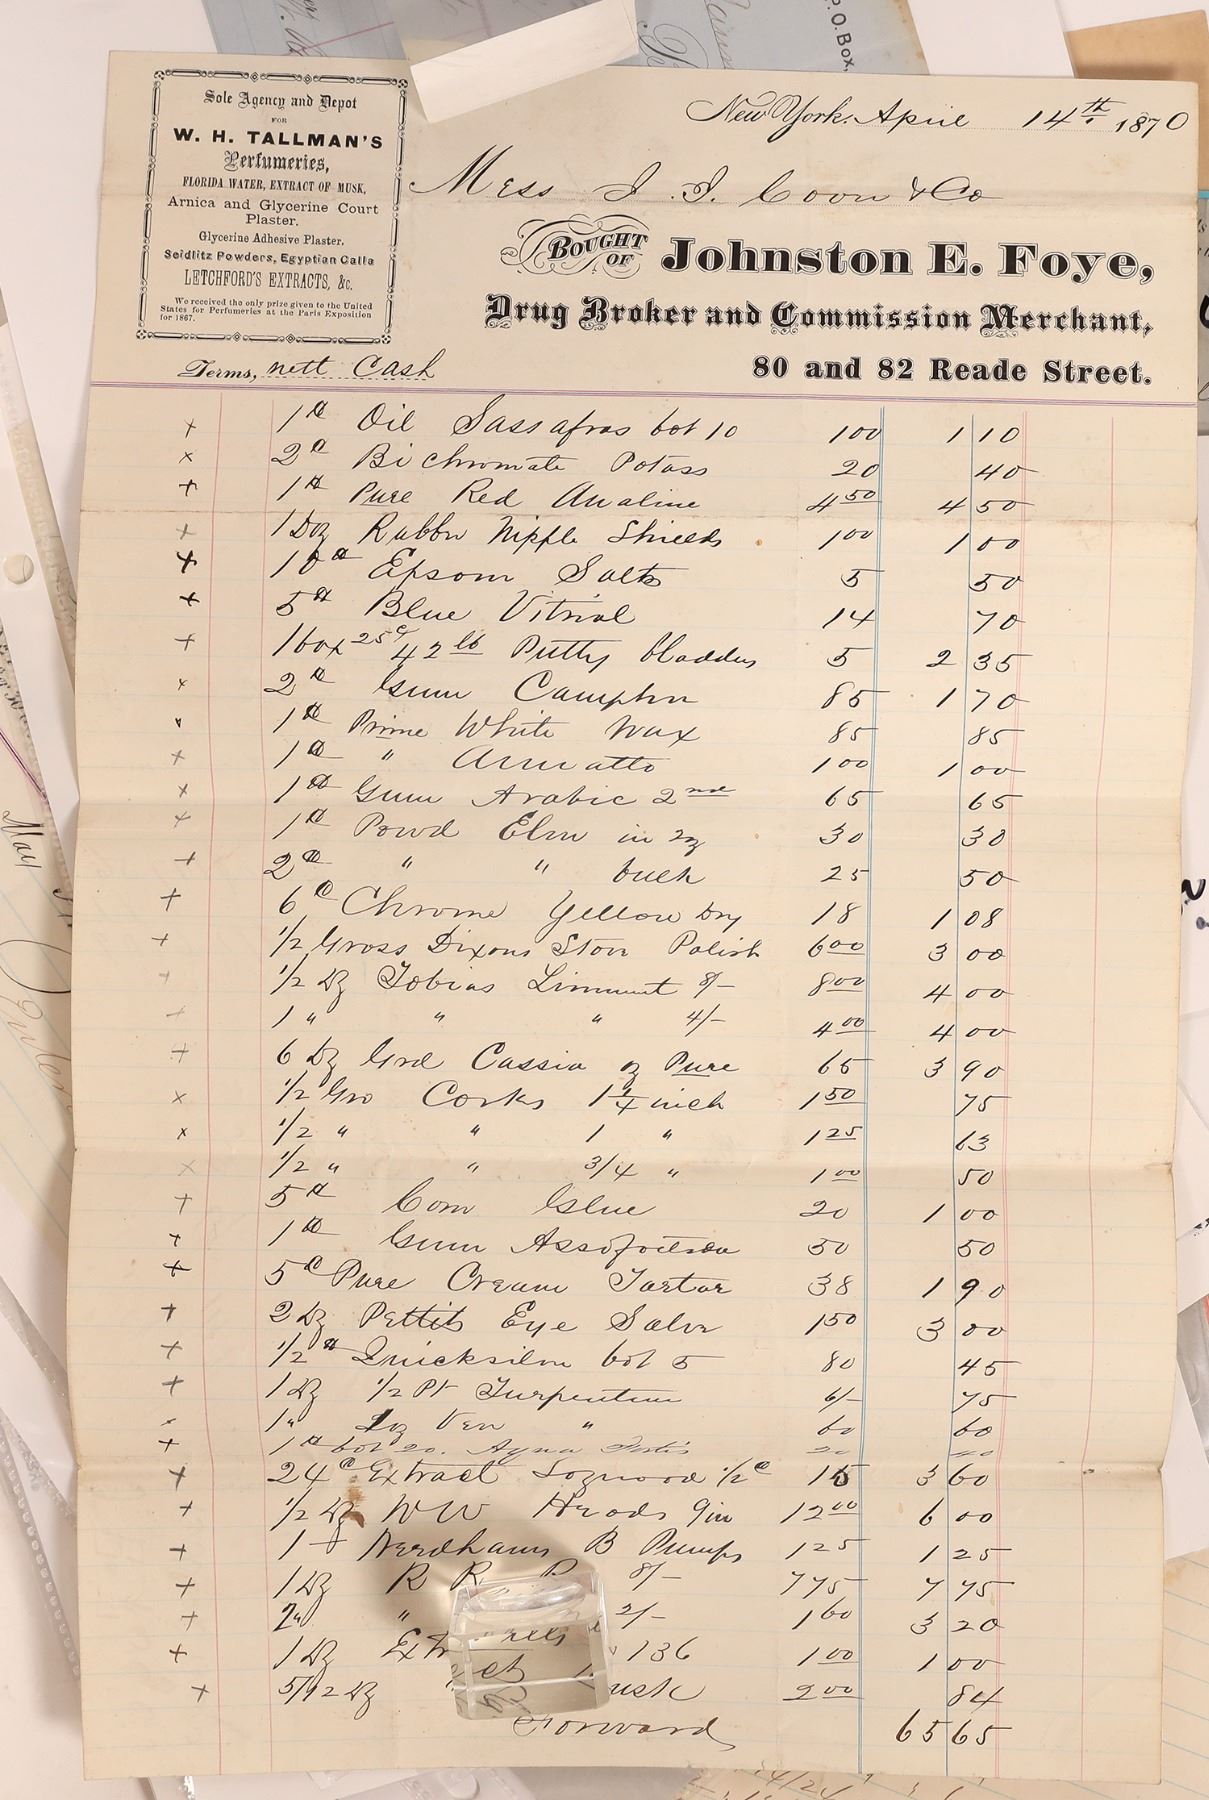 Sole Agency and Depot
FOR
W. H. TALLMAN'S
Perfumeries,
FLORIDA WATER, EXTRACT OF MUSK,
Arnica and Glycerine Court
Plaster.
Glycerine Adhesive Plaster.
Seidlitz Powders, Egyptian Calla
LETCHFORD'S EXTRACTS, &c.
We received the only prize given to the United
States for Perfumeries at the Paris Exposition
for 1867.
P.O. Box,
New York, April 14th 1870
Mess J. J. Coon & Co
BOUGHT OF Johnston E. Foye,
Drug Broker and Commission Merchant,
80 and 82 Reade Street.
Terms, nett Cash
x 1 Oil Sassafras bot 10 100 1 10
x 2 Bi chromate Potass 20 40
x 1 Pure Red Analine 4 50 4 50
x 1 Doz Rubber Nipple Shields 1 00 1 00
x 10 Epsom Salts 5 50
x 5 Blue Vitriol 14 70
x 1 box 25c 42 lb Putty bladders 5 2 35
x 2 Gum Camphor 85 1 70
x 1 Prime White Wax 85 85
x 1 " Annatto 1 00 1 00
x 1 Gum Arabic 2nd 65 65
x 1 Powd Elm in oz 30 30
x 2 " " bulk 25 50
x 6 Chrome Yellow Dry 18 1 08
x 1/2 Gross Dixons Stove Polish 6 00 3 00
x 1/2 Dz Tobias Liniment 8/- 8 00 4 00
x 1 " " " 4/- 4 00 4 00
x 6 Dz Grd Cassia oz Pure 65 3 90
x 1/2 Gro Corks 1 1/4 inch 1 50 75
x 1/2 " " 1 " 1 25 63
x 1/2 " " 3/4 " 1 00 50
x 5 Com Glue 20 1 00
x 1 Gum Assafoetida 50 50
x 5 Pure Cream Tartar 38 1 90
x 2 Dz Pettits Eye Salve 1 50 3 00
x 1/2 Quicksilver bot 5 80 45
x 1 Dz 1/2 Pt Turpentine 6/- 75
1 " Ven " 60 60
x 1 bot 20. Aqua Fortis 20 40
x 24 Extract Logwood 1/2 15 3 60
x 1/2 Dz WW Heads 9in 12 00 6 00
x 1 Needhams B Pumps 1 25 1 25
x 1 Dz R R 8/- 7 75 7 75
x 2 " " 2/- 1 60 3 20
x 1 Dz 136 1 00 1 00
x 5/12 Dz 2 00 84
Forward 65 65